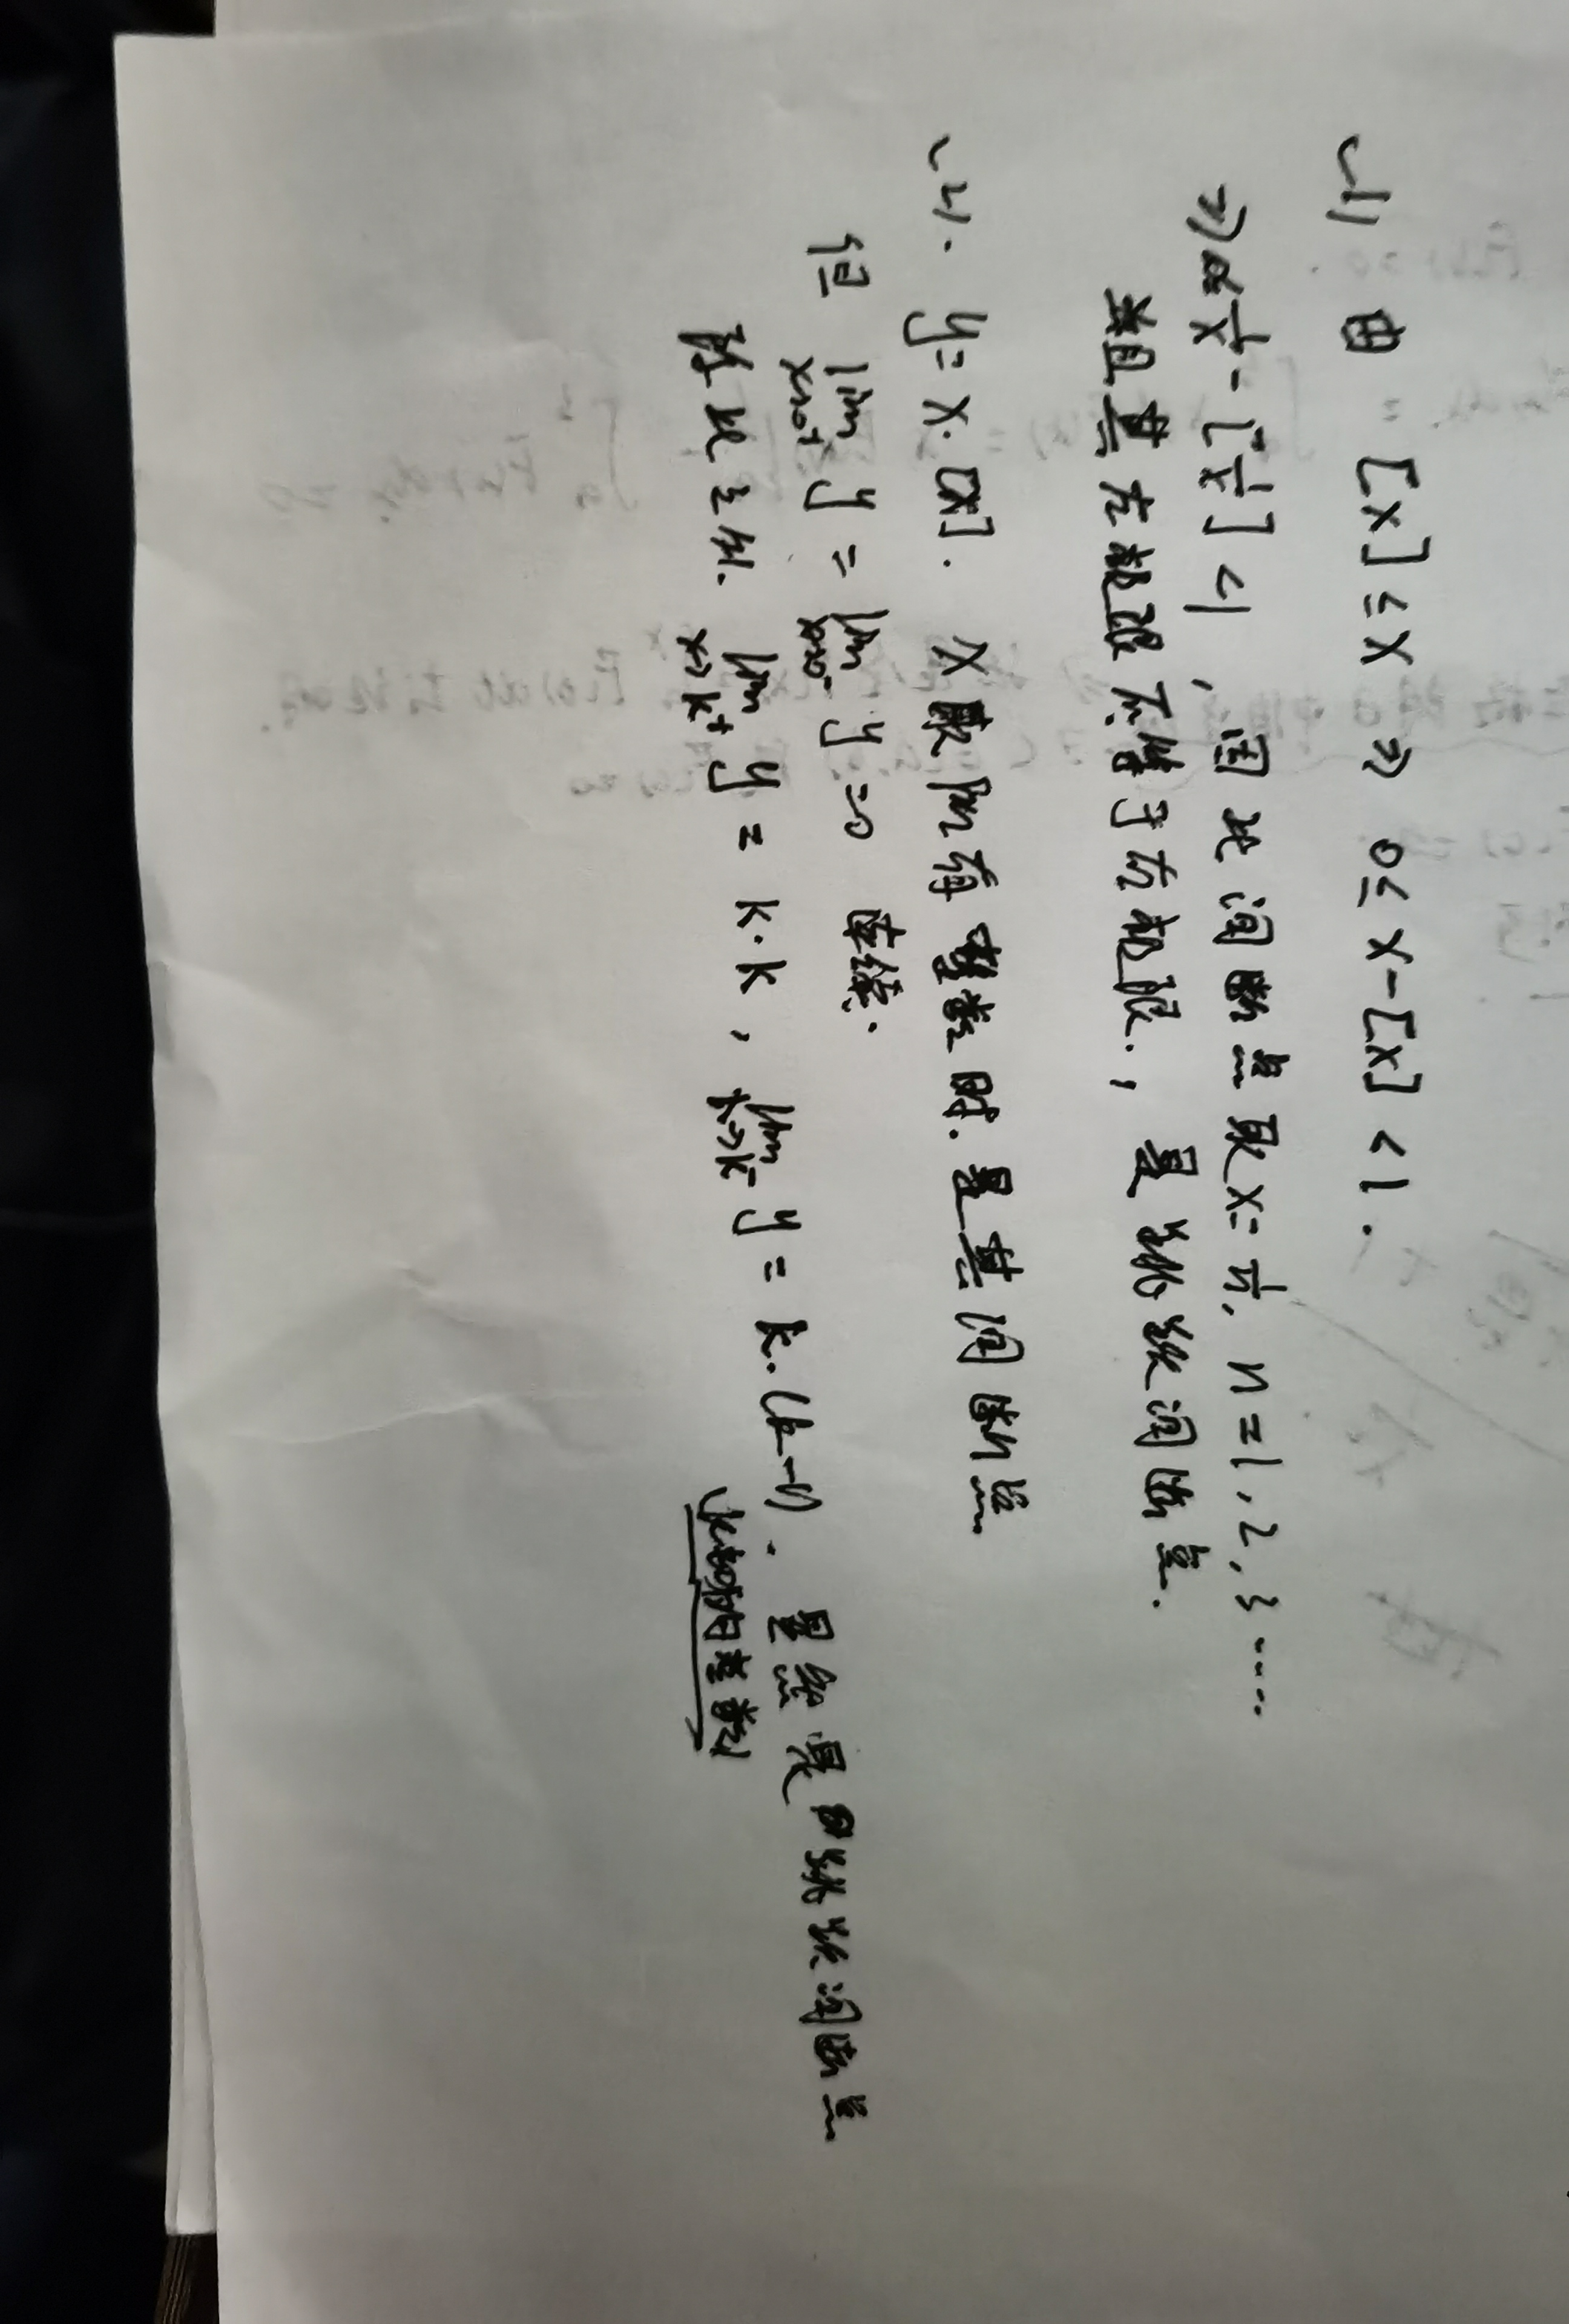 (1) 由 [x]≤x ⇒ 0≤x-[x]<1.
⇒ 0≤1/x-[1/x]<1, 因此间断点取x=1/n, n=1,2,3....
并且其左极限不等于右极限., 是跳跃间断点.
(2). y=x·[x]. x取所有整数时.是其间断点
但 lim x→0+ y = lim x→0- y =0 连续.
除此之外. lim x→k+ y = k·k, lim x→k- y = k.(k-1). 显然是跳跃间断点